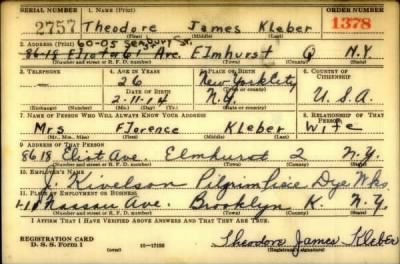 SERIAL NUMBER 1. NAME (Print) ORDER NUMBER
2757 Theodore James Kleber 1378
(First) (Middle) (Last)
2. ADDRESS (Print) 60-05
86-18 Ave. Elmhurst Q N.Y.
(Number and street or R. F. D. number) (Town) (County) (State)
3. TELEPHONE 4. AGE IN YEARS 5. PLACE OF BIRTH 6. COUNTRY OF CITIZENSHIP
26 New York City
DATE OF BIRTH (Town or county)
2-11-14 N.Y. U.S.A.
(Exchange) (Number) (Mo.) (Day) (Yr.) (State or country)
7. NAME OF PERSON WHO WILL ALWAYS KNOW YOUR ADDRESS 8. RELATIONSHIP OF THAT PERSON
Mrs Florence Kleber Wife
(Mr., Mrs., Miss) (First) (Middle) (Last)
9. ADDRESS OF THAT PERSON
8618 Ave. Elmhurst N.Y.
(Number and street or R. F. D. number) (Town) (County) (State)
10. EMPLOYER'S NAME
Pilgrim Dye Wks.
11. PLACE OF EMPLOYMENT OR BUSINESS
Nassau Ave. Brooklyn K. N.Y.
(Number and street or R. F. D. number) (Town) (County) (State)
I AFFIRM THAT I HAVE VERIFIED ABOVE ANSWERS AND THAT THEY ARE TRUE.
REGISTRATION CARD
D. S. S. Form 1 16-17105 Theodore James Kleber
(Registrant's signature)